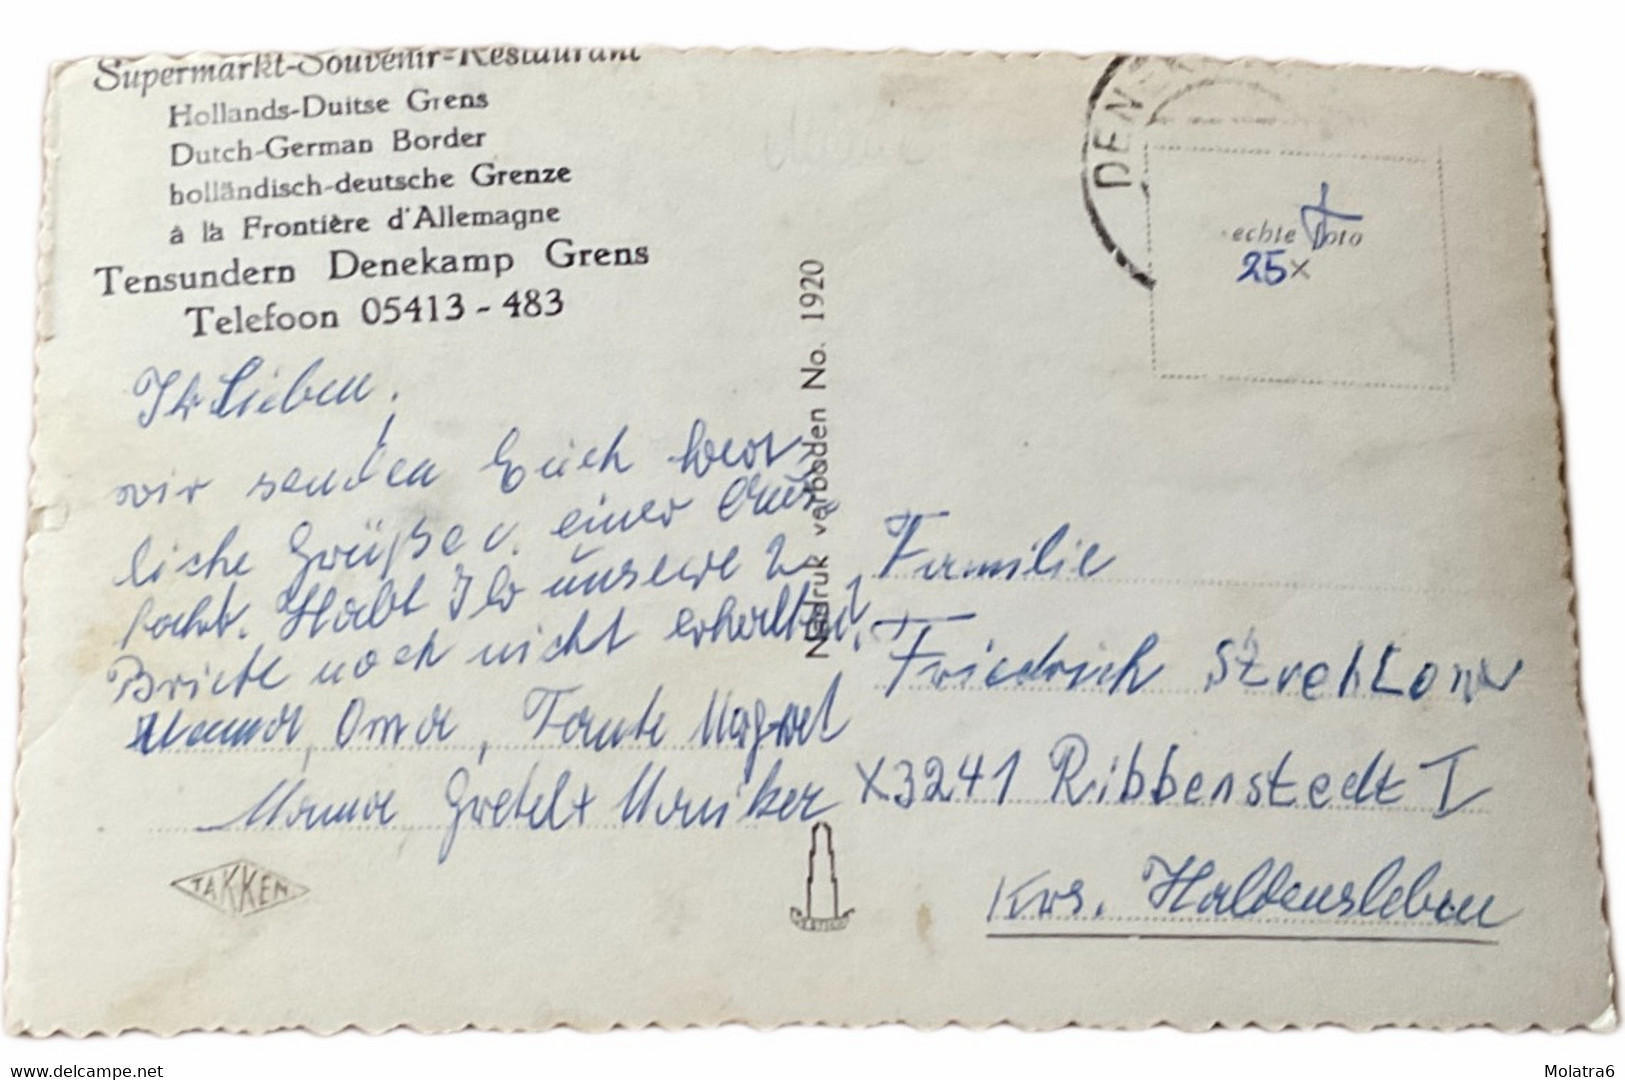 Supermarkt-Souvenir-Restaurant
Hollands-Duitse Grens
Dutch-German Border
holländisch-deutsche Grenze
à la Frontière d'Allemagne
Tensundern Denekamp Grens
Telefoon 05413 - 483
Ihr Lieben,
wir senden Euch herz
liche Grüße v. einer Aus
fahrt. Habt Ihr unsere 2
Briefe noch nicht erhalten?
Oma, Tante Magret
Mama Gretel +
TAKKEN
Nadruk verboden No. 1920
DEN
echte foto
25x
Familie
Friedrich Strehlow
X3241 Ribbenstedt I
Krs. Haldensleben
www.delcampe.net
Molatra6